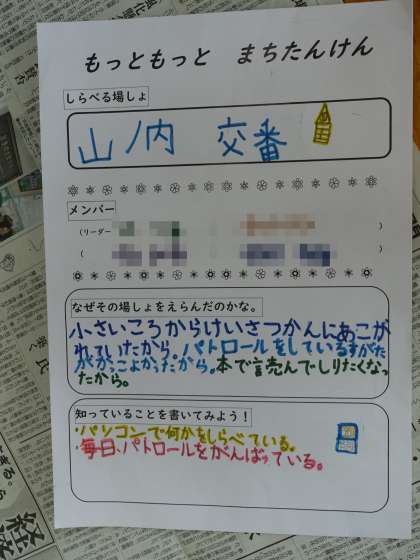 もっともっと まちたんけん
しらべる場しょ
山ノ内 交番
メンバー
(リーダー )
( )
なぜその場しょをえらんだのかな。
小さいころからけいさつかんにあこが
れていたから。パトロールをしているすがた
がかっこよかったから。本で読んでしりたくなっ
たから。
知っていることを書いてみよう！
・パソコンで何かをしらべている。
・毎日、パトロールをがんばっている。